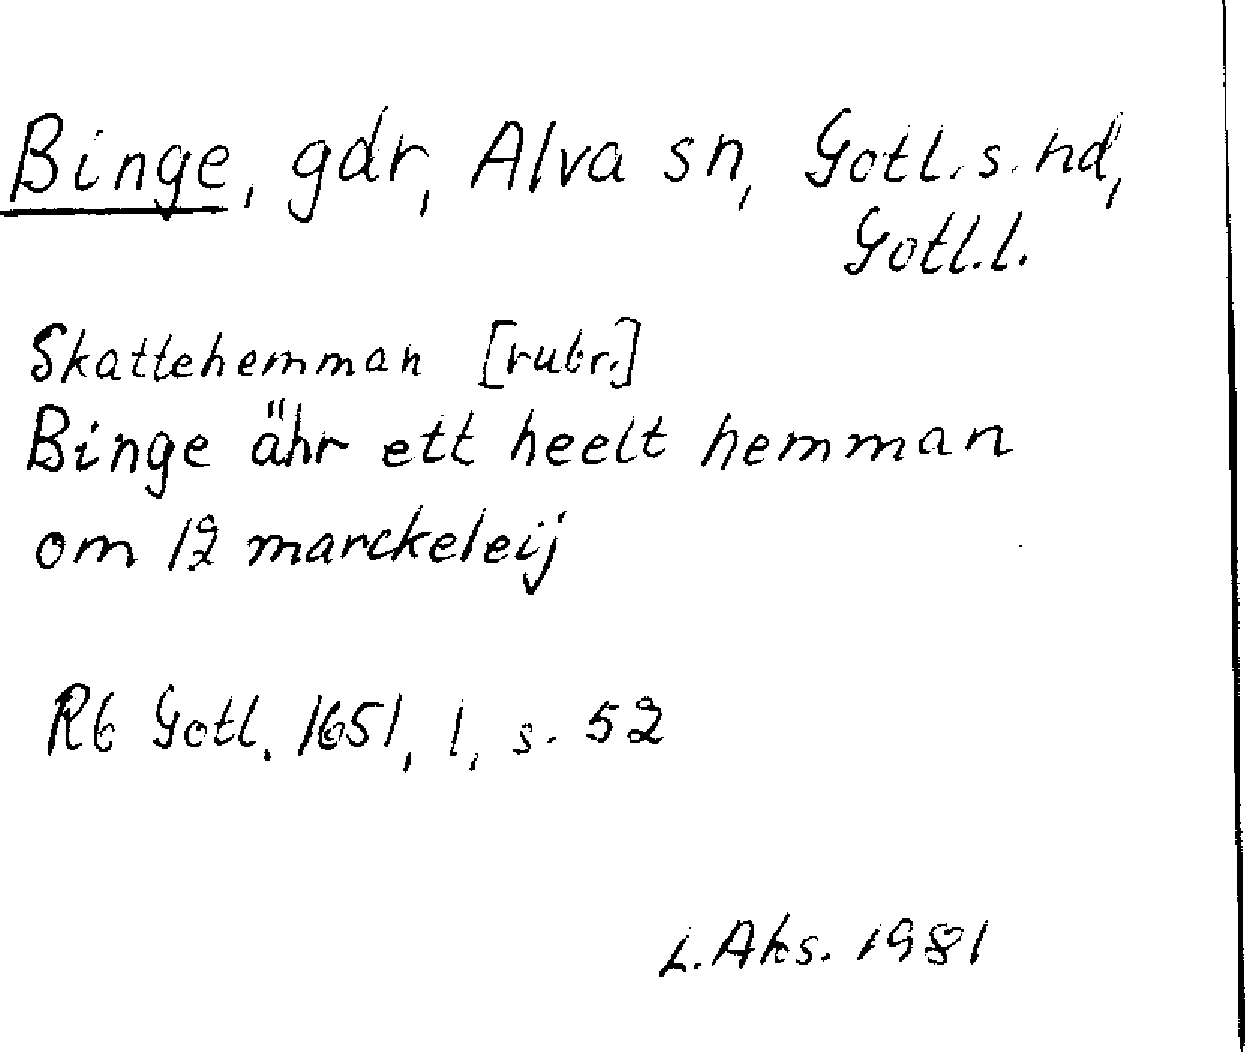 Binge, gdr, Alva sn, Gotl. s. hd,
Gotl.l.
Skattehemman [rubr.]
Binge ähr ett heelt hemman
om 12 marckeleij
Rb Gotl. 1651, 1, s. 52
L. Aks. 1981